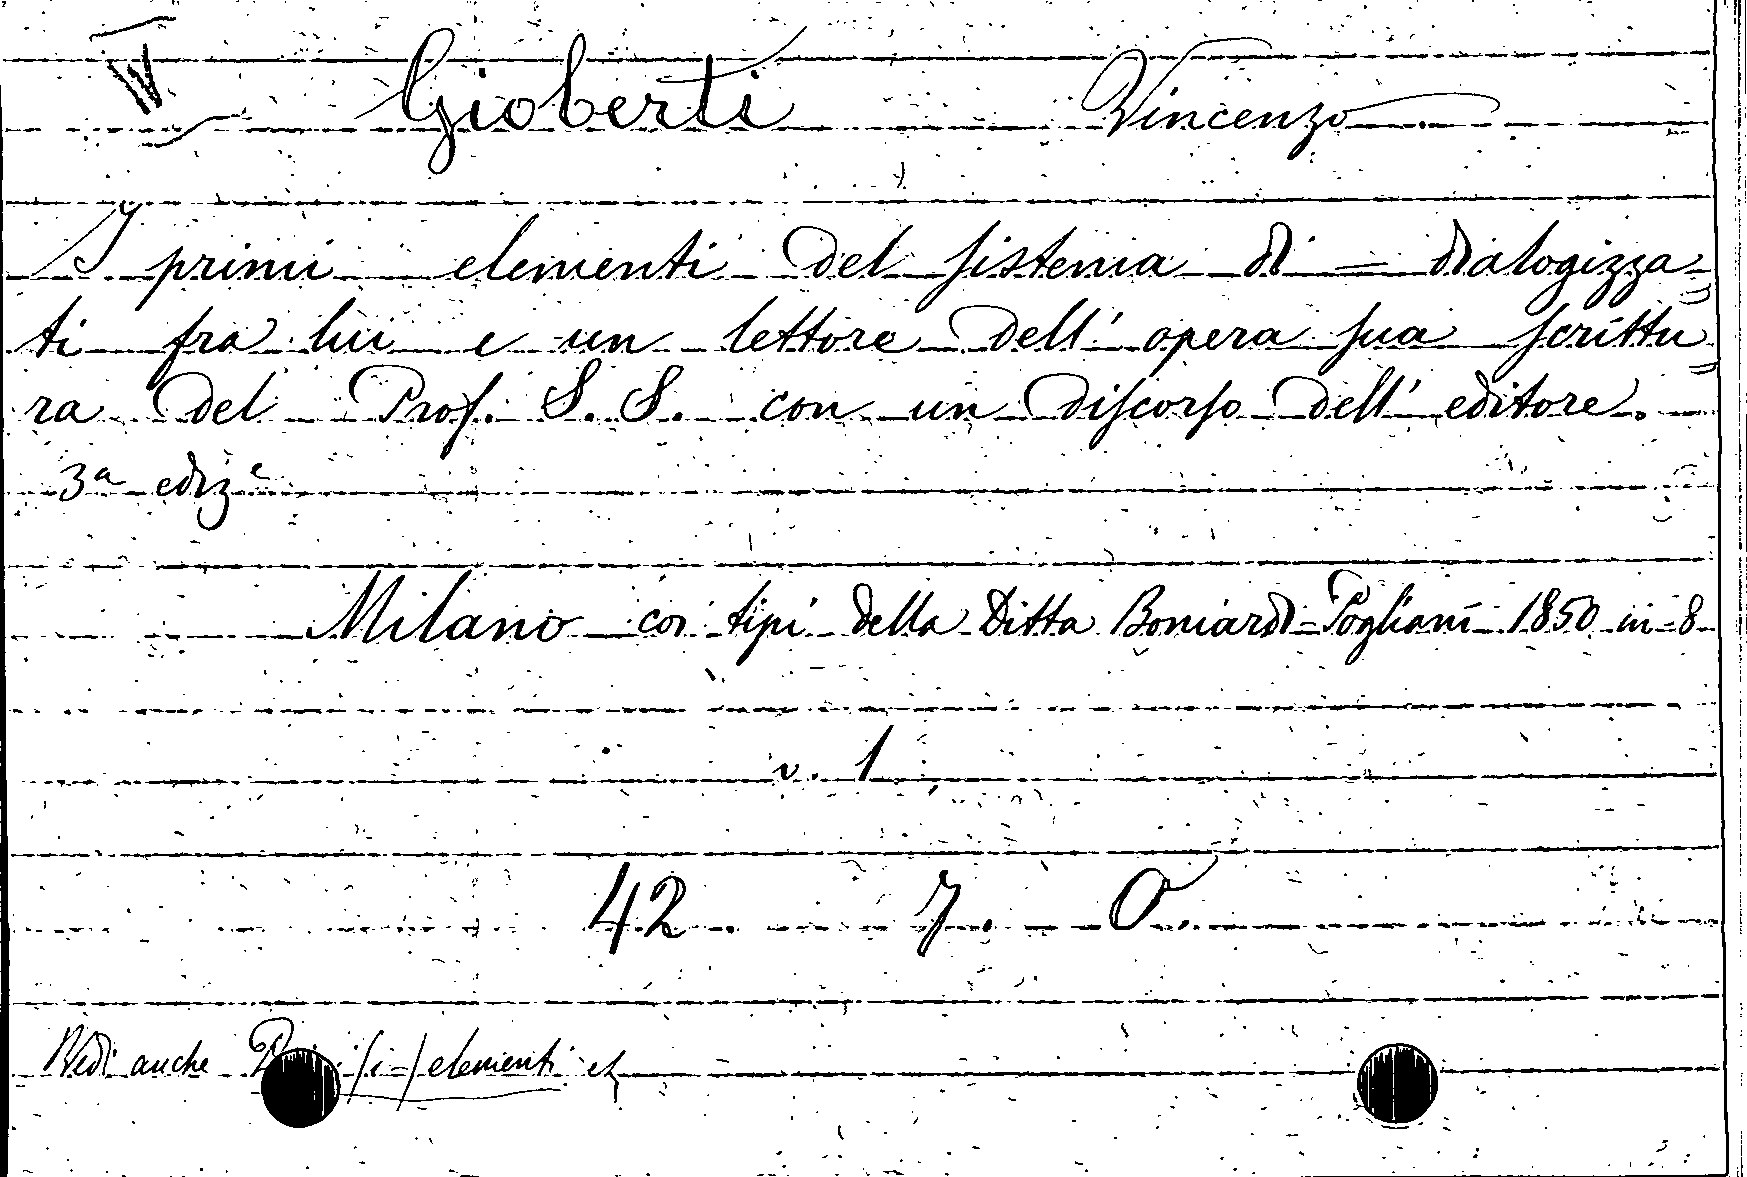 IV Gioberti Vincenzo
I primi elementi del sistema di = dialogizza=
ti fra lui e un lettore dell' opera sua scrittu=
ra del Prof. S. S. con un discorso dell' editore.
3a edize
Milano coi tipi della Ditta Boniardi=Pogliani 1850 in-8
v. 1
42. 7. O.
Vedi anche (i) elementi